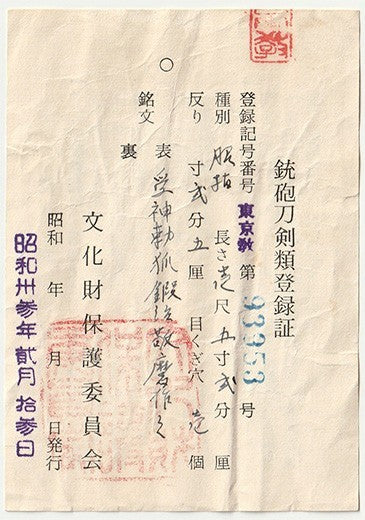 銃砲刀剣類登録証
登録記号番号 東京教 第 93953 号
種別 脇指 長さ 壱尺五寸弐分 厘
反り 寸弐分五厘 目くぎ穴 壱個
銘文 表 受神勅狐鍛冶敬
裏
文化財保護委員会
昭和 年 月 日発行
昭和卅参年貳月拾参日